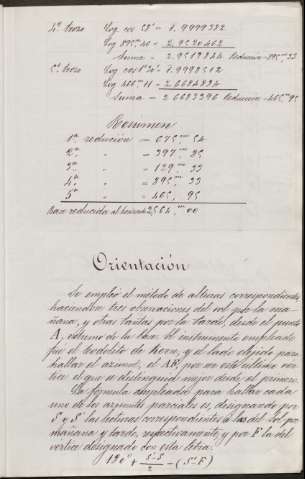 4º trozo Log cos 58' = 1,9999382
Log 895,40 = 2,9520462
Suma = 2,9519844 Reducción = 895,33
5º trozo Log cos
Log 466,11 = 2,6684884
Suma = 2,6683396 Reducción =
Resumen
1ª reducción = 675, 54
2ª - = 397, 85
3ª - = 129, 33
4ª - = 895, 33
5ª - = 465, 95
Base reducida al horizonte 2564,00
Orientación
Se empleó el método de alturas correspondientes
haciendose tres observaciones del sol por la ma-
ñana, y otras tantas por la tarde, desde el punto
A, extremo de la base. El instrumento empleado
fué el teodolito de Horn, y el lado elejido para
hallar el azimut, el AF, por ser este último vér-
tice el que se distinguía mejor desde el primero.
La fórmula empleada para hallar cada
uno de los azimutes parciales es, designando por
S y S' las lecturas correspondientes a las del sol por
mañana y tarde, respectivamente, y por F la del
vértice designado con esta letra:
180º + (S'-S)/2 - (S'-F)